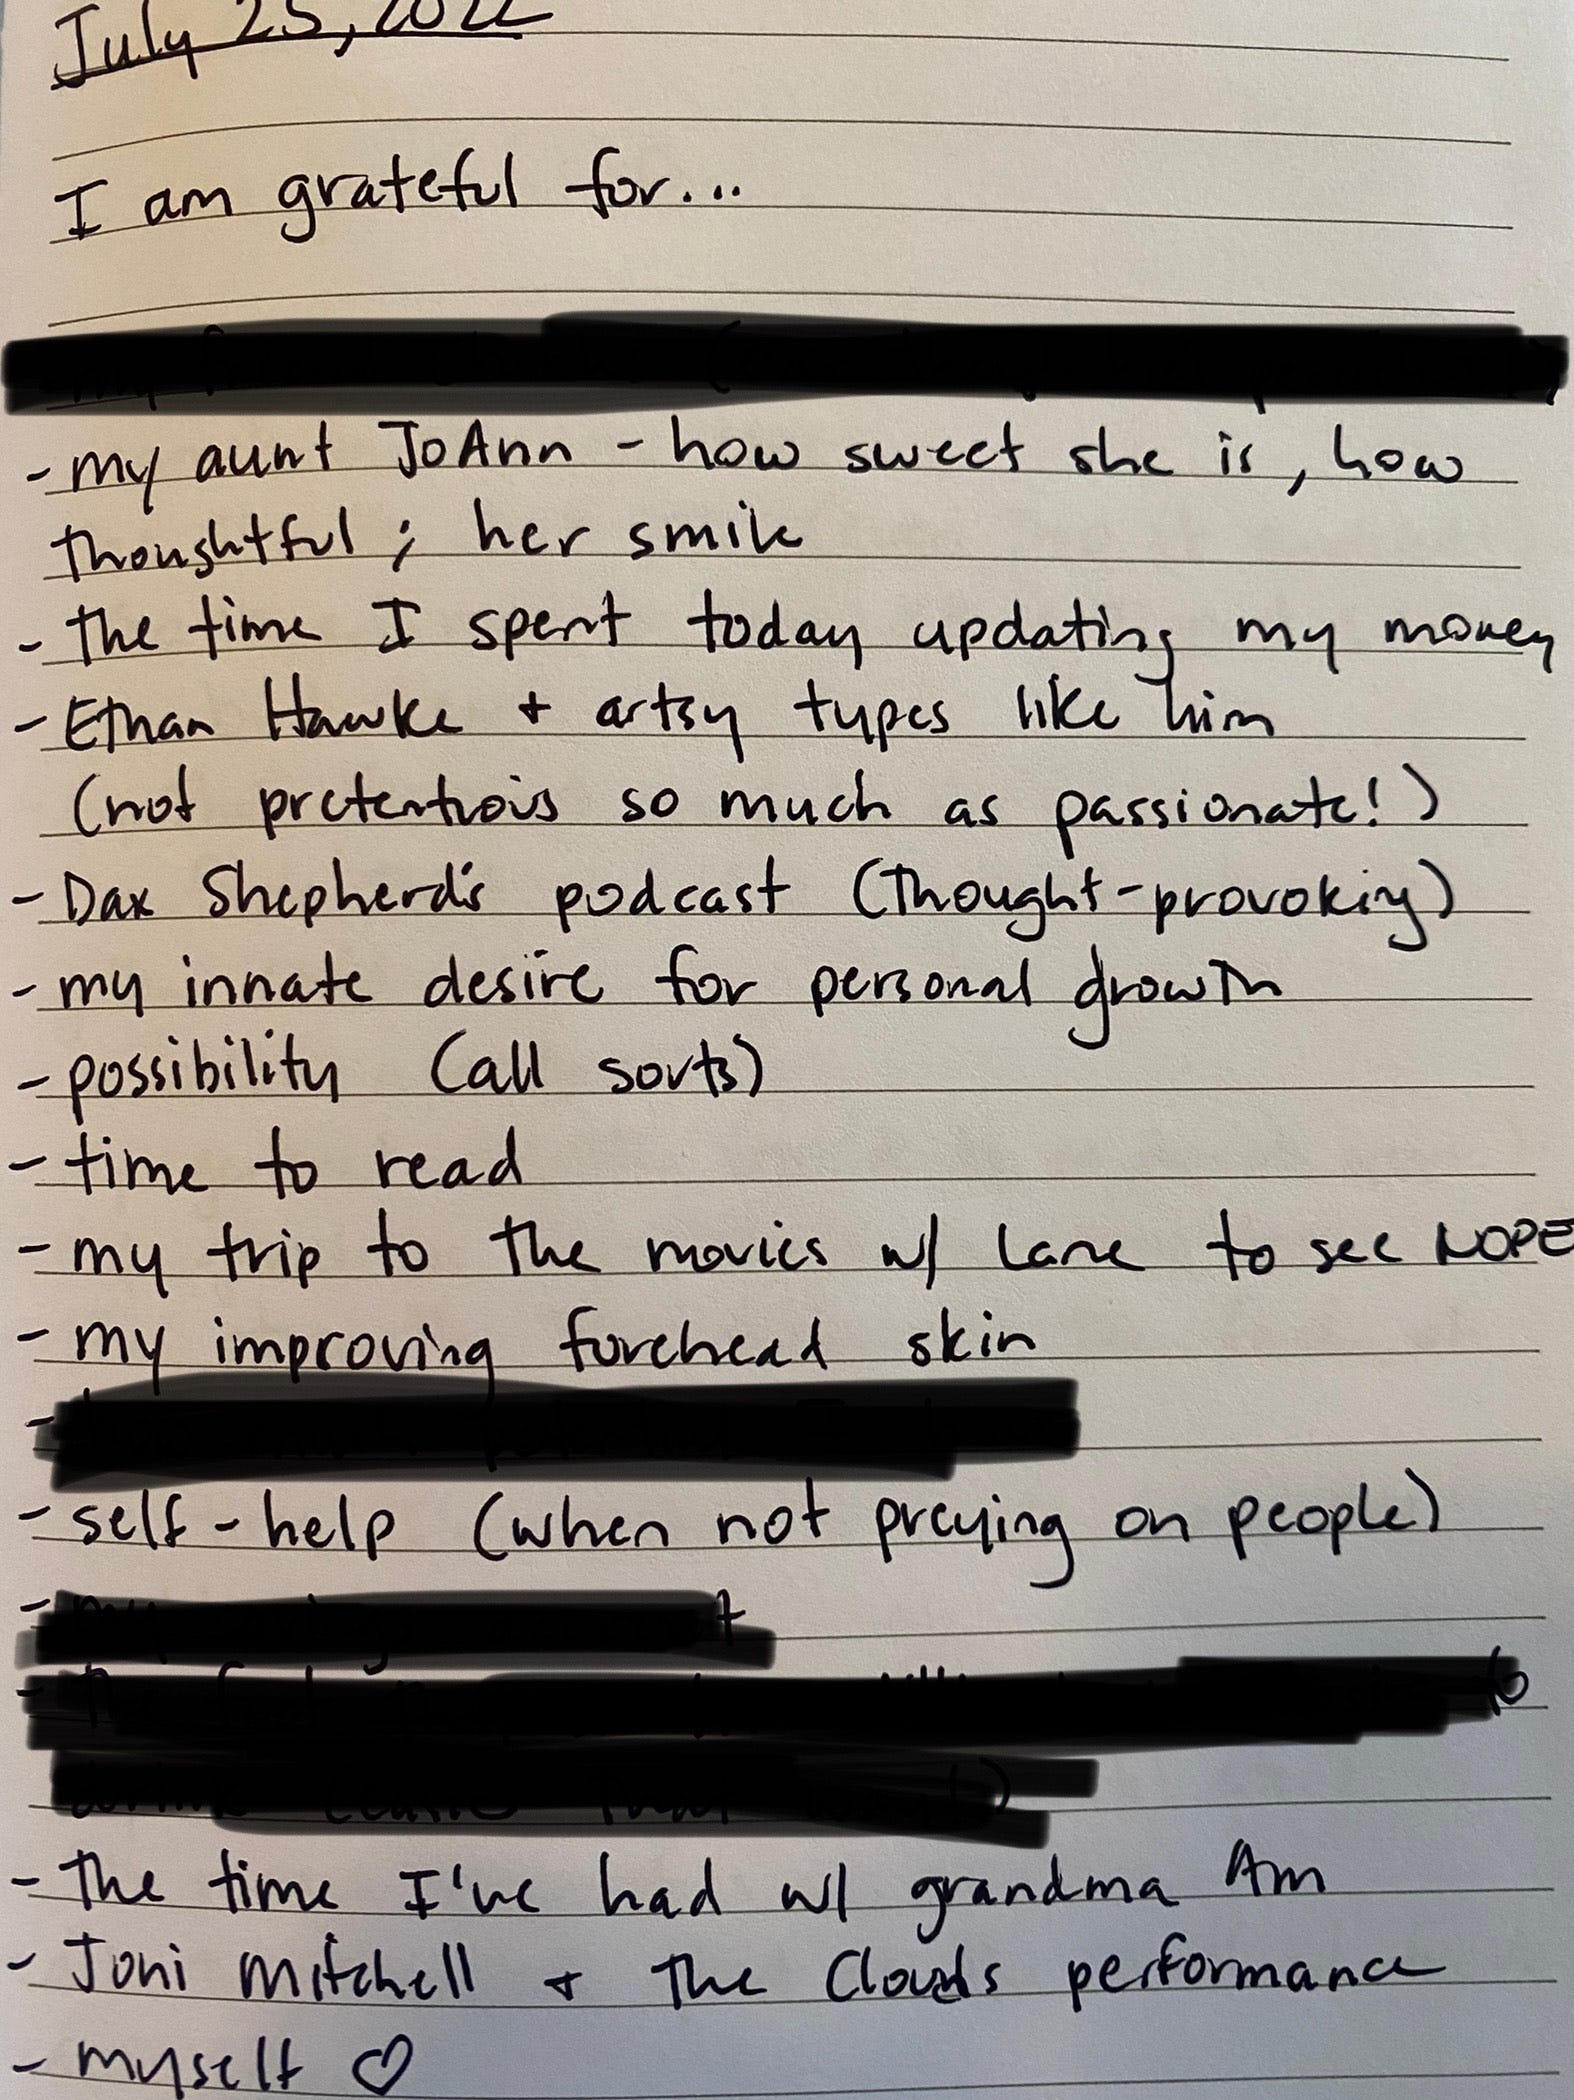 July 25, 2022
I am grateful for...
- my aunt JoAnn - how sweet she is, how
thoughtful; her smile
- the time I spent today updating my money
- Ethan Hawke + artsy types like him
(not pretentious so much as passionate!)
- Dax Shepherd's podcast (thought-provoking)
- my innate desire for personal growth
- possibility (all sorts)
- time to read
- my trip to the movies w/ Lane to see NOPE
- my improving forehead skin
- self-help (when not preying on people)
- the time I've had w/ grandma Am
- Joni Mitchell + the Clouds performance
- myself ♡